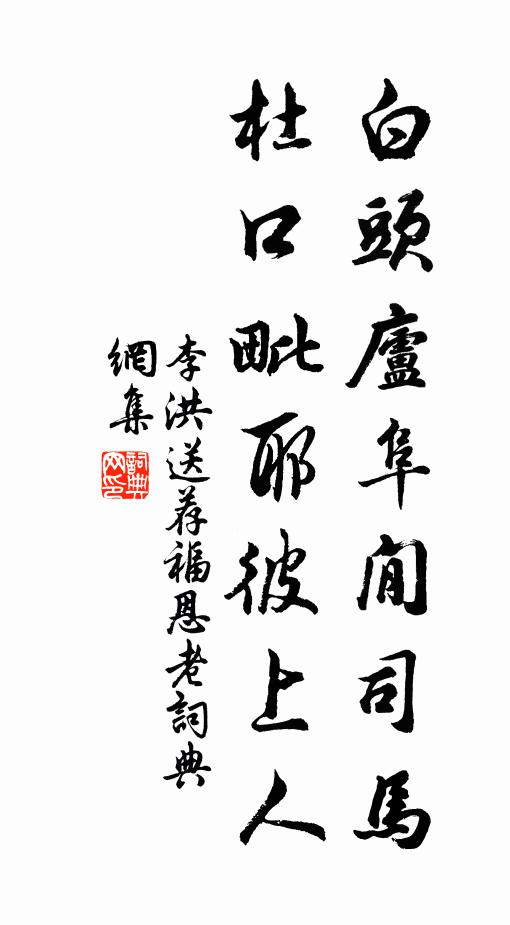 白頭廬阜閒司馬
杜口毗耶彼上人
李洪送荐福恩老詞典
網集
詞典
网印